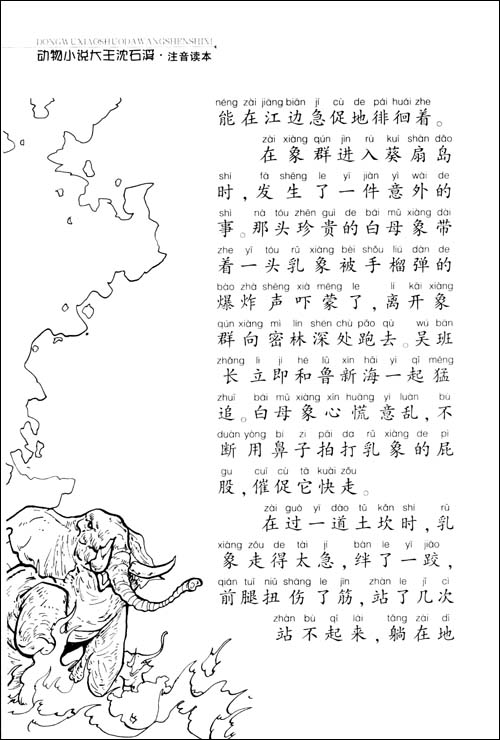 DONGWUXIAOSHUODAWANGSHENSHIXI
动物小说大王沈石溪·注音读本
néng zài jiāng biān jí cù de pái huái zhe
能在江边急促地徘徊着。
zài xiàng qún jìn rù kuí shàn dǎo
在象群进入葵扇岛
shí fā shēng le yí jiàn yì wài de
时,发生了一件意外的
shì nà tóu zhēn guì de bái mǔ xiàng dài
事。那头珍贵的白母象带
zhe yì tóu rǔ xiàng bèi shǒu liú dàn de
着一头乳象被手榴弹的
bào zhà shēng xià méng le lí kāi xiàng
爆炸声吓蒙了,离开象
qún xiàng mì lín shēn chù pǎo qù wú bān
群向密林深处跑去。吴班
zhǎng lì jí hé lǔ xīn hǎi yì qǐ měng
长立即和鲁新海一起猛
zhuī bái mǔ xiàng xīn huāng yì luàn bú
追。白母象心慌意乱,不
duàn yòng bí zi pāi dǎ rǔ xiàng de pì
断用鼻子拍打乳象的屁
gu cuī cù tā kuài zǒu
股,催促它快走。
zài guò yí dào tǔ kǎn shí rǔ
在过一道土坎时,乳
xiàng zǒu de tài jí bàn le yì jiāo
象走得太急,绊了一跤,
qián tuǐ niǔ shāng le jīn zhàn le jǐ cì
前腿扭伤了筋,站了几次
zhàn bù qǐ lái tǎng zài dì
站不起来,躺在地